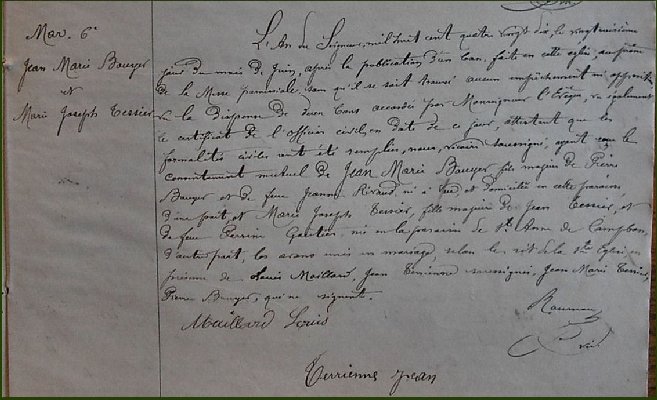 Mar. 6e
Jean Marie Bouyer
et
Marie Josephe Tessier
L'An du Seigneur, mil huit cent quatre vingt dix, le vingt
jour du mois de Juin, après la publication d'un ban faite en cette église, au prône
de la Messe paroissiale, sans qu'il se soit trouvé aucun empêchement ni opposition
vu la dispense de deux bans accordée par Monseigneur l'Evêque, vu également
le certificat de l'officier civil, en date de ce jour, attestant que les
formalités civiles ont été remplies, nous, vicaire soussigné, ayant reçu le
consentement mutuel de Jean Marie Bouyer fils majeur de Pierre
Bouyer et de feue Jeanne Rivaud, né à et domicilié en cette paroisse
d'une part, et Marie Josephe Tessier, fille majeure de Jean Tessier, et
de feue Perrine Gautier, née en la paroisse de Ste Anne de Campbon,
d'autre part, les avons unis en mariage, selon le rit de la Ste Eglise, en
présence de Louis Maillard, Jean Terrienne soussignés, Jean Marie Tessier,
Pierre Bouyer, qui ne signent.
Maillard Louis
Terrienne Jean